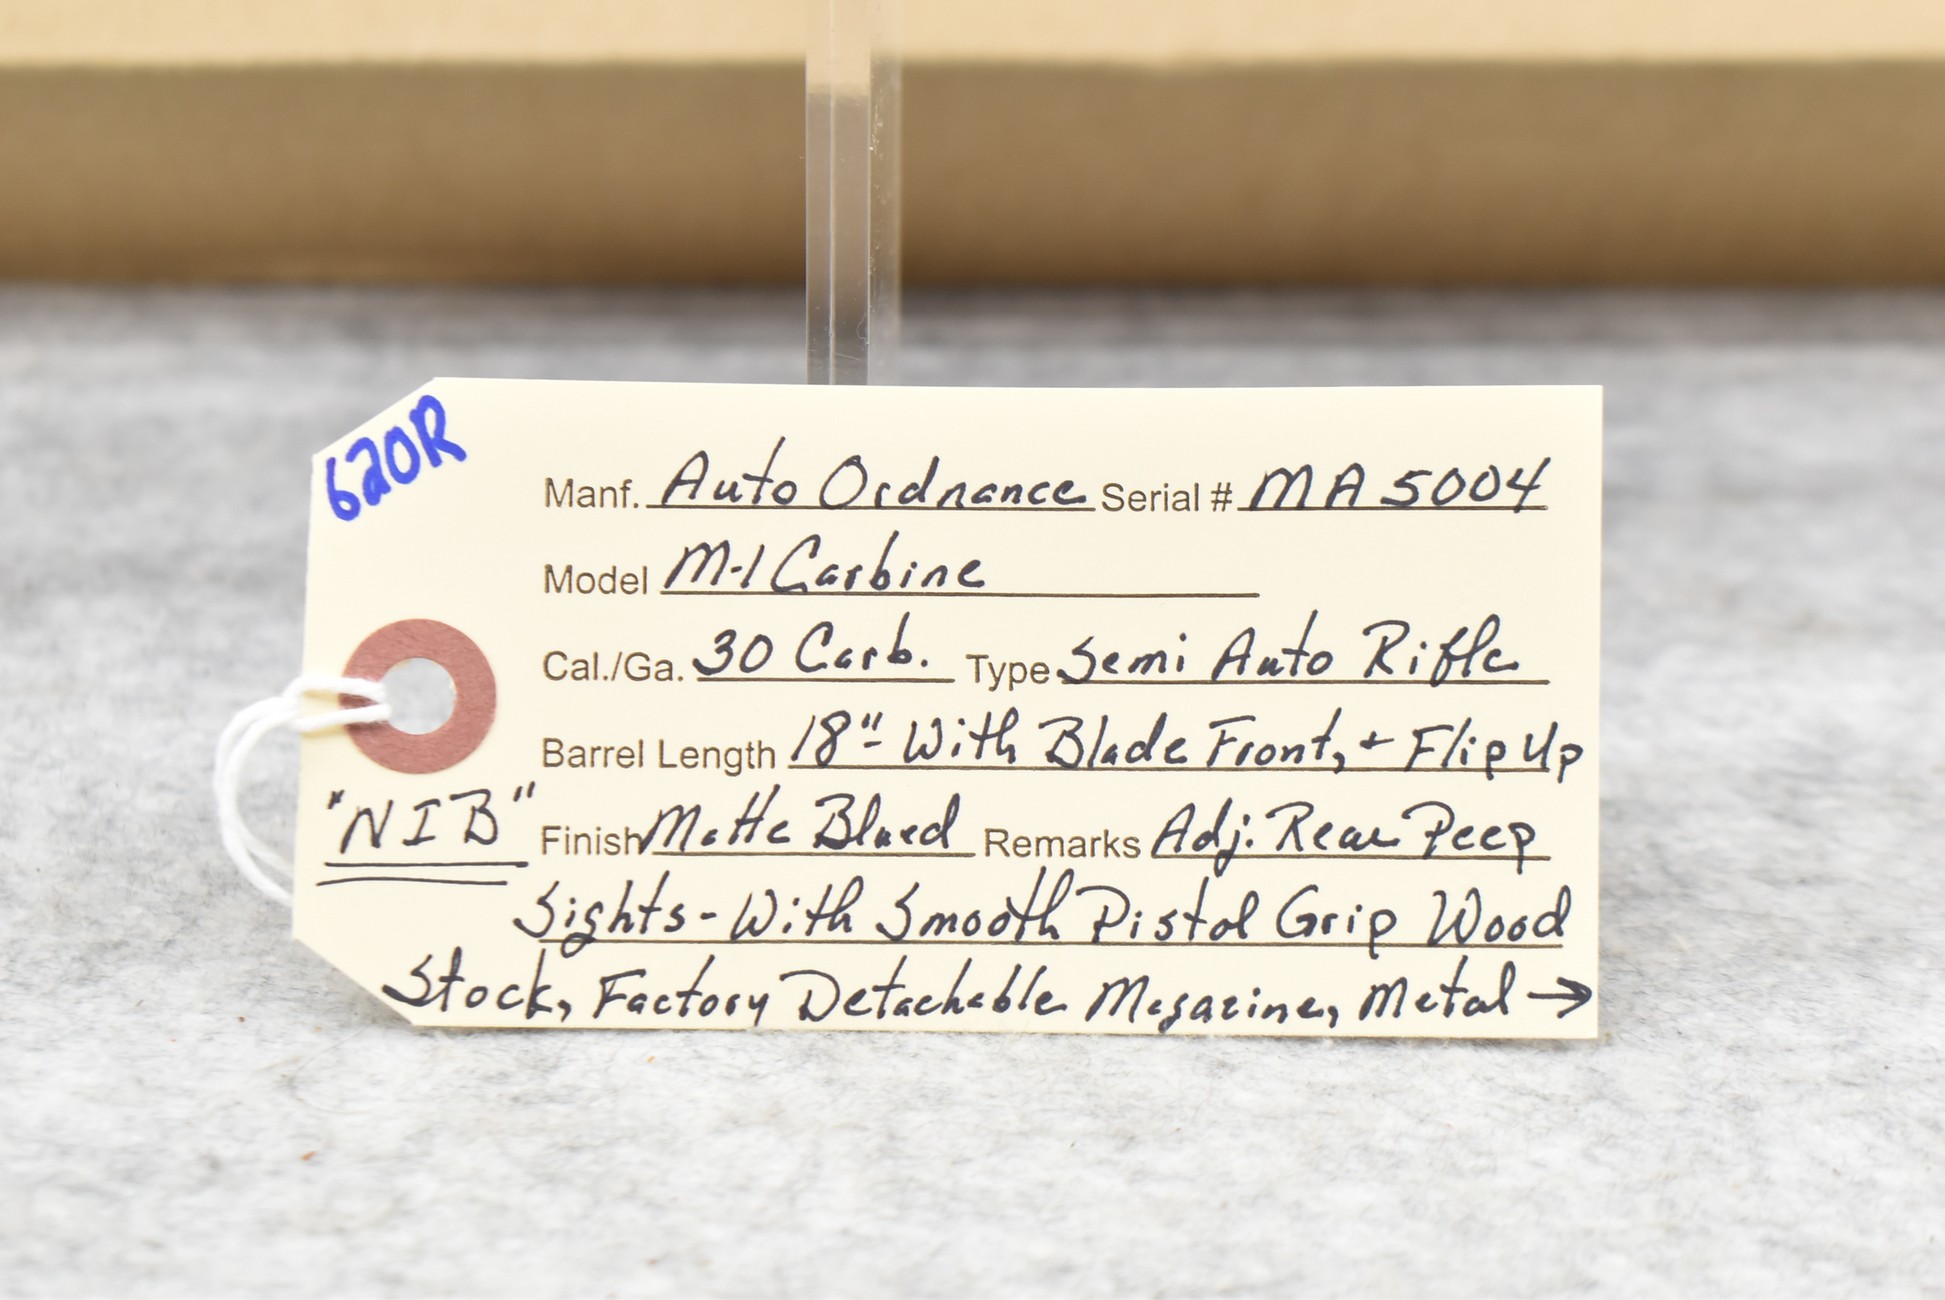 620R
Manf. Auto Ordnance Serial # MA5004
Model M-1 Carbine
Cal./Ga. 30 Carb. Type Semi Auto Rifle
Barrel Length 18"- With Blade Front, + Flip Up
"NIB" Finish Matte Blued Remarks Adj. Rear Peep
Sights - With Smooth Pistol Grip Wood
Stock, Factory Detachable Magazine, Metal →